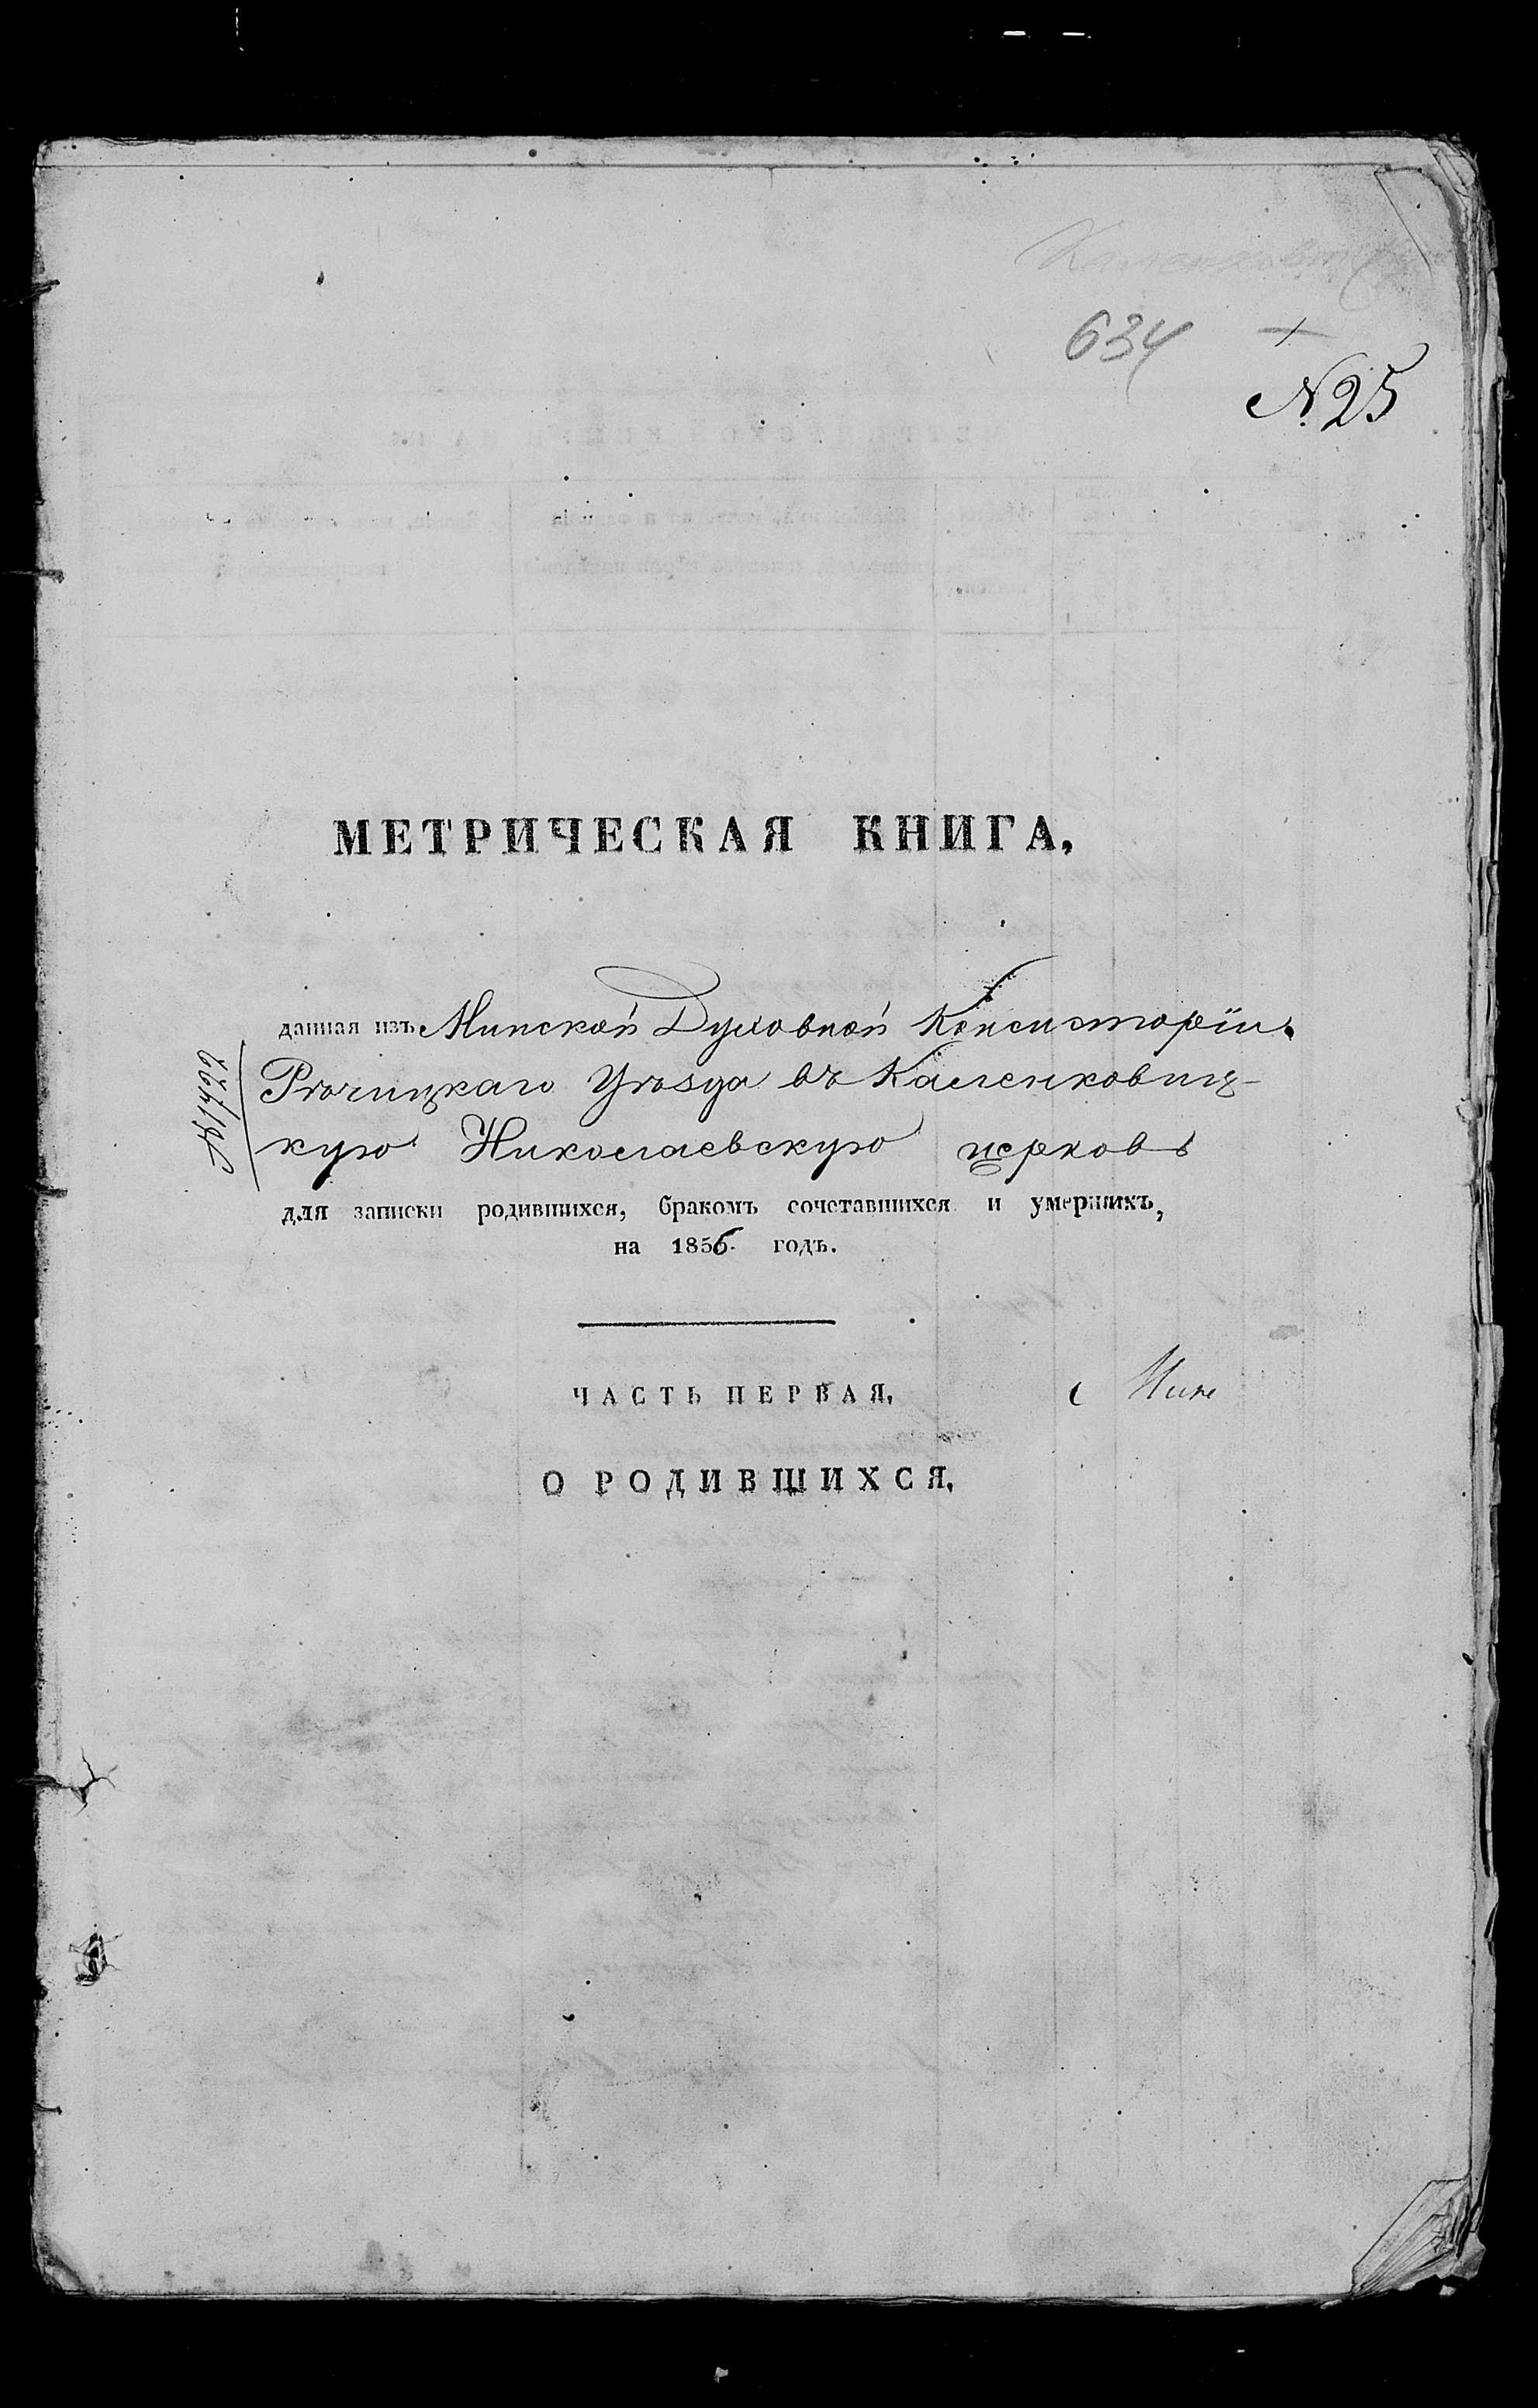 634
№25
МЕТРИЧЕСКАЯ КНИГА,
данная изъ Минской Духовной Консисторіи.
Рѣчицкаго Уѣзда въ Каленковиц-
кую Николаевскую церковь
для записки родившихся, бракомъ сочетавшихся и умершихъ,
на 1856 годъ.
ЧАСТЬ ПЕРВАЯ,
О РОДИВШИХСЯ,